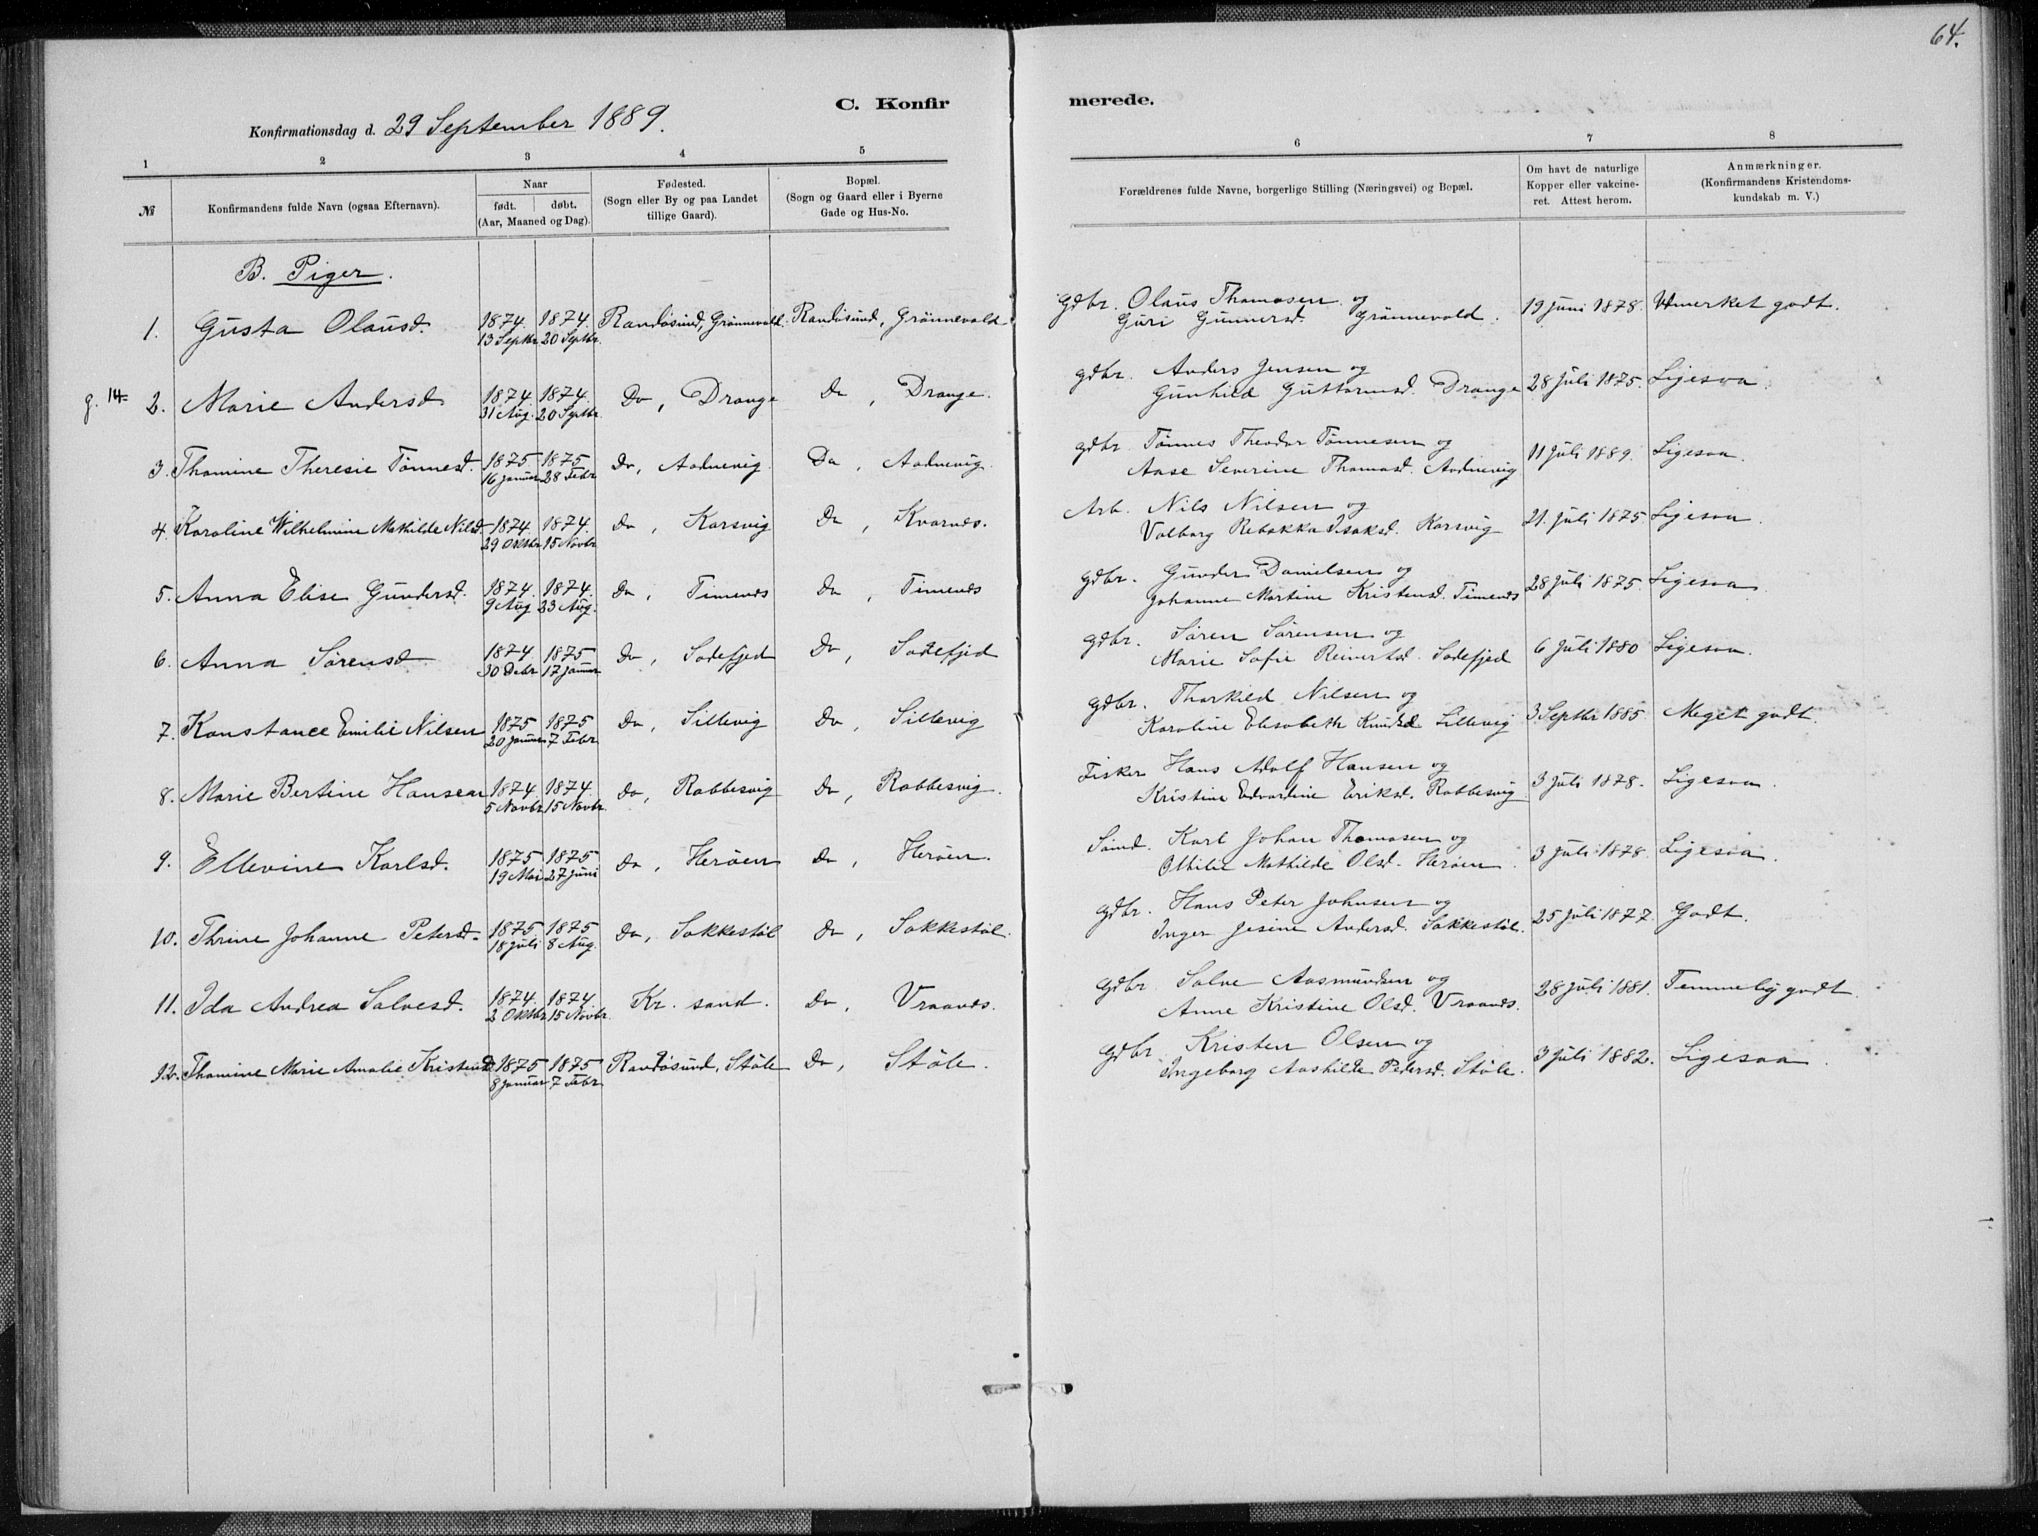 64.
C. Konfirmerede.
Konfirmationsdag d. 29 September 1889.
1 2 3 4 5 6 7 8
№ | Konfirmandens fulde Navn (ogsaa Efternavn). | Naar født. døbt. (Aar, Maaned og Dag). | Fødested. (Sogn eller By og paa Landet tillige Gaard). | Bopæl. (Sogn og Gaard eller i Byerne Gade og Hus-No. | Forældrenes fulde Navne, borgerlige Stilling (Næringsvei) og Bopæl. | Om havt de naturlige Kopper eller vakcineret. Attest herom. | Anmærkninger. (Konfirmandens Kristendomskundskab m. V.)
B. Piger.
1. Gusta Olausd. | 1874. 13 Septbr. | 1874. 20 Septbr. | Randøsund, Grønnevold. | Randøsund, Grønnevold | Gdbr. Olaus Thomasen og Guri Gunnersd. Grønnevold. | 19 Juni 1878. | Udmerket godt.
g. 14 2. Marie Andersd. | 1874. 31 Aug. | 1874. 20 Septbr. | Do, Drange | Do, Drange. | gdbr. Anders Jensen og Gunhild Guttormsd. Drange | 28 Juli 1875. | Ligesaa.
3. Thomine Theresie Tønnesd. | 1875 16 Januar | 1875 28 Febr. | Do, Aodnevig. | Do, Aodnevig. | gdbr. Tønnes Theodor Tønnesen og Aase Severine Thomasd. Aodnevig | 11 Juli 1889. | Ligesaa.
4. Karoline Wilhelmine Mathilde Nilsd. | 1874. 29 Oktbr. | 1874. 15 Novbr. | Do, Korsvig | Do, Kvarnes. | Arb. Nils Nilsen og Valborg Rebekka Isaksd. Korsvig | 21. Juli 1875 | Ligesaa.
5. Anna Elise Gundersd. | 1874. 9 Aug. | 1874. 23 Aug. | Do, Timenes | Do, Timenes | gdbr. Gunder Danielsen og Johanne Martine Kristensd. Timenes | 28 Juli 1875. | Ligesaa
6. Anna Sørensd. | 1874 30 Debr. | 1875 17 Januar | Do, Sodefjed | Do, Sodefjed | gdbr. Søren Sørensen og Marie Sofie Reinertsd. Sodefjed | 6 Juli 1880 | Ligesaa.
7. Konstance Emilie Nilsen | 1875 20 Januar | 1875 7 Febr. | Do, Lillevig | Do, Lillevig | gdbr. Thorkild Nilsen og Karoline Elisabeth Knudsd. Lillevig | 3 Septbr 1885. | Meget godt.
8. Marie Bertine Hansen | 1874. 5 Novbr. | 1874. 15 Novbr. | Do, Robbesvig | Do, Robbesvig. | Fisker Hans Adolf Hansen og Kristine Edvardine Eriksd. Robbesvig | 3 Juli 1878. | Ligesaa.
9. Ellevine Karlsd. | 1875 19 Mai | 1875 27 Juni | Do, Herøen | Do, Herøen. | Sømd. Karl Johan Thomasen og Othilie Mathilde Olsd. Herøen | 3 Juli 1878. | Ligesaa.
10. Thrine Johanne Petersd. | 1875 18 Juli | 1875 8 Aug. | Do, Sokkestøl | Do, Sokkestøl. | gdbr. Hans Peter Johnsen og Inger Jesine Andersd. Sokkestøl. | 25 Juli 1877. | Godt.
11. Ida Andrea Salvesd. | 1874. 2 Oktbr. | 1874. 15 Novbr. | Kr. sand. | Do, Vraanes. | gdbr. Salve Aasmundsen og Anne Kristine Olsd. Vraanes. | 28 Juli 1881. | Temmelig godt.
12. Thomine Marie Amalie Kristensd. | 1875 8 Januar | 1875 7 Febr. | Randøsund, Støle | Do, Støle. | gdbr. Kristen Olsen og Ingeborg Aashilde Pedersd. Støle. | 3 Juli 1882. | Ligesaa.